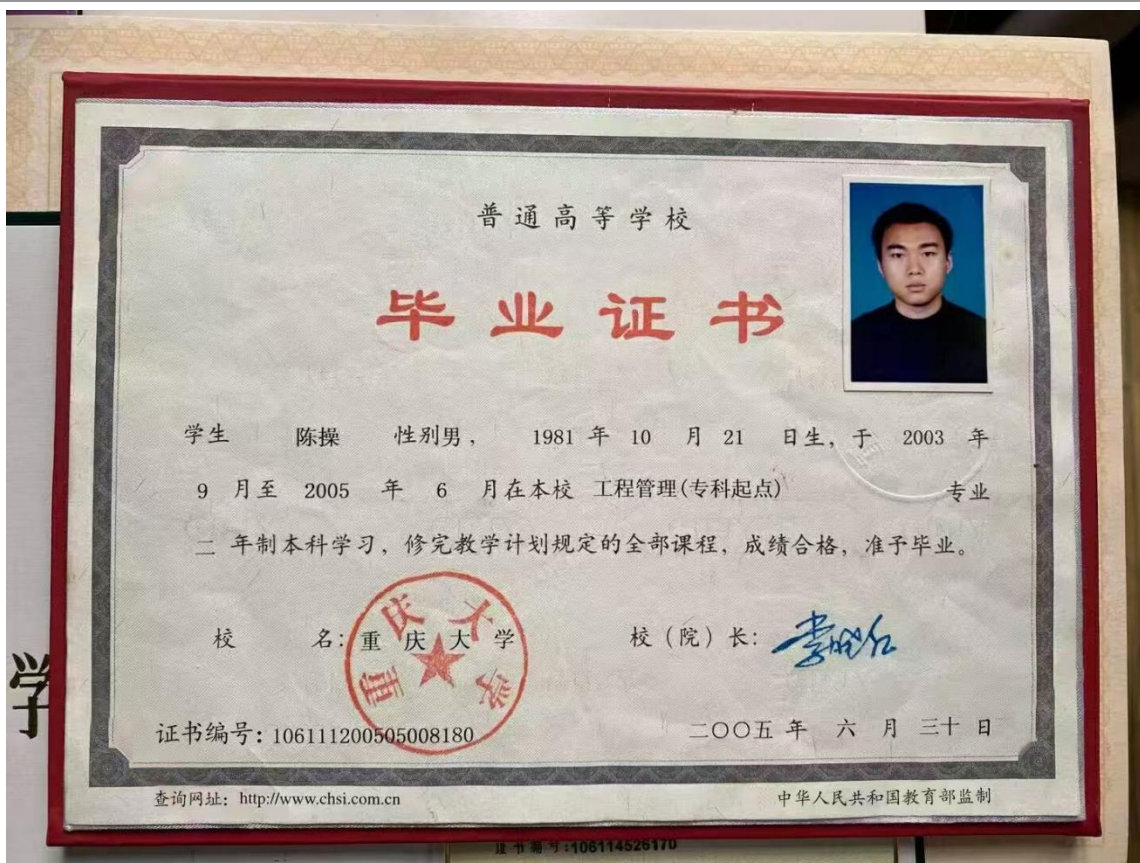 普通高等学校
毕业证书
学生 陈操 性别男， 1981 年 10 月 21 日生，于 2003 年
9 月至 2005 年 6 月在本校 工程管理(专科起点) 专业
二 年制本科学习，修完教学计划规定的全部课程，成绩合格，准予毕业。
校 名：重庆大学 校（院）长：
重庆大学
证书编号：106111200505008180 二〇〇五 年 六 月 三十 日
查询网址：http://www.chsi.com.cn 中华人民共和国教育部监制
学
证书编号:106114526170